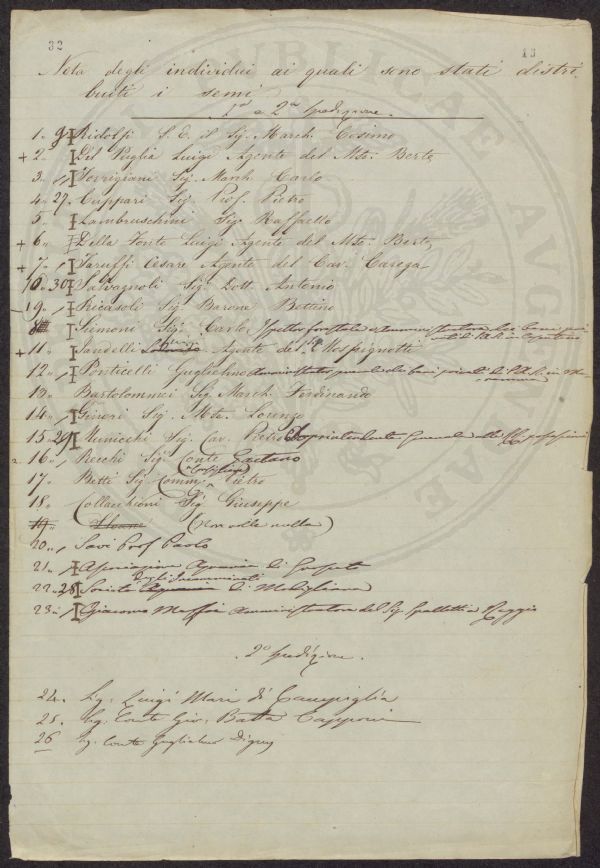 32 13
Nota degli individui ai quali sono stati distri
buiti i semi
1ª e 2ª Spedizione.
1. Ridolfi S. E. il Sig. March. Cosimo
+ 2. Del Puglia Luigi Agente del Mse. Berte
3. Torrigiani Sig. March. Carlo
4. 27. Cuppari Sig. Prof. Pietro
5. Lambruschini Sig. Raffaello
+ 6. Della Fonte Luigi Agente del Mse. Berte
+ 7. Taruffi Cesare Agente del Cav. Carega
30 Salvagnoli Sig. Dott. Antonio
9. Ricasoli Sig. Barone Bettino
Siemoni Sig. Carlo Ispettor forestale
+ 11. Sandelli Luigi Agente del Mospignotti
12. Ponticelli Guglielmo
13. Bartolommei Sig. March. Ferdinando
14. Ginori Sig. Mse. Lorenzo
15. 29 Municchi Sig. Cav. Pietro Soprintendente Generale alle possessioni
16. Recchi Sig. Conte Gaetano
17. Betti Sig. Comm. Pietro
18. Collacchioni Sig. Giuseppe
19. Sloane (Non volle nulla)
20. Savi Prof. Paolo
21. Associazione Agraria di Grosseto
degli Incamminati
22. 28 Società Agraria di Modigliana
23. Giacomo Maffia amministratore del Sig. Spalletti a Reggio
2ª Spedizione.
24. Sig. Luigi Mari di Campiglia
25. Sig. Conte Gio: Batta Capponi
26 Sig. Conte Guglielmo Digny
UBLICAE